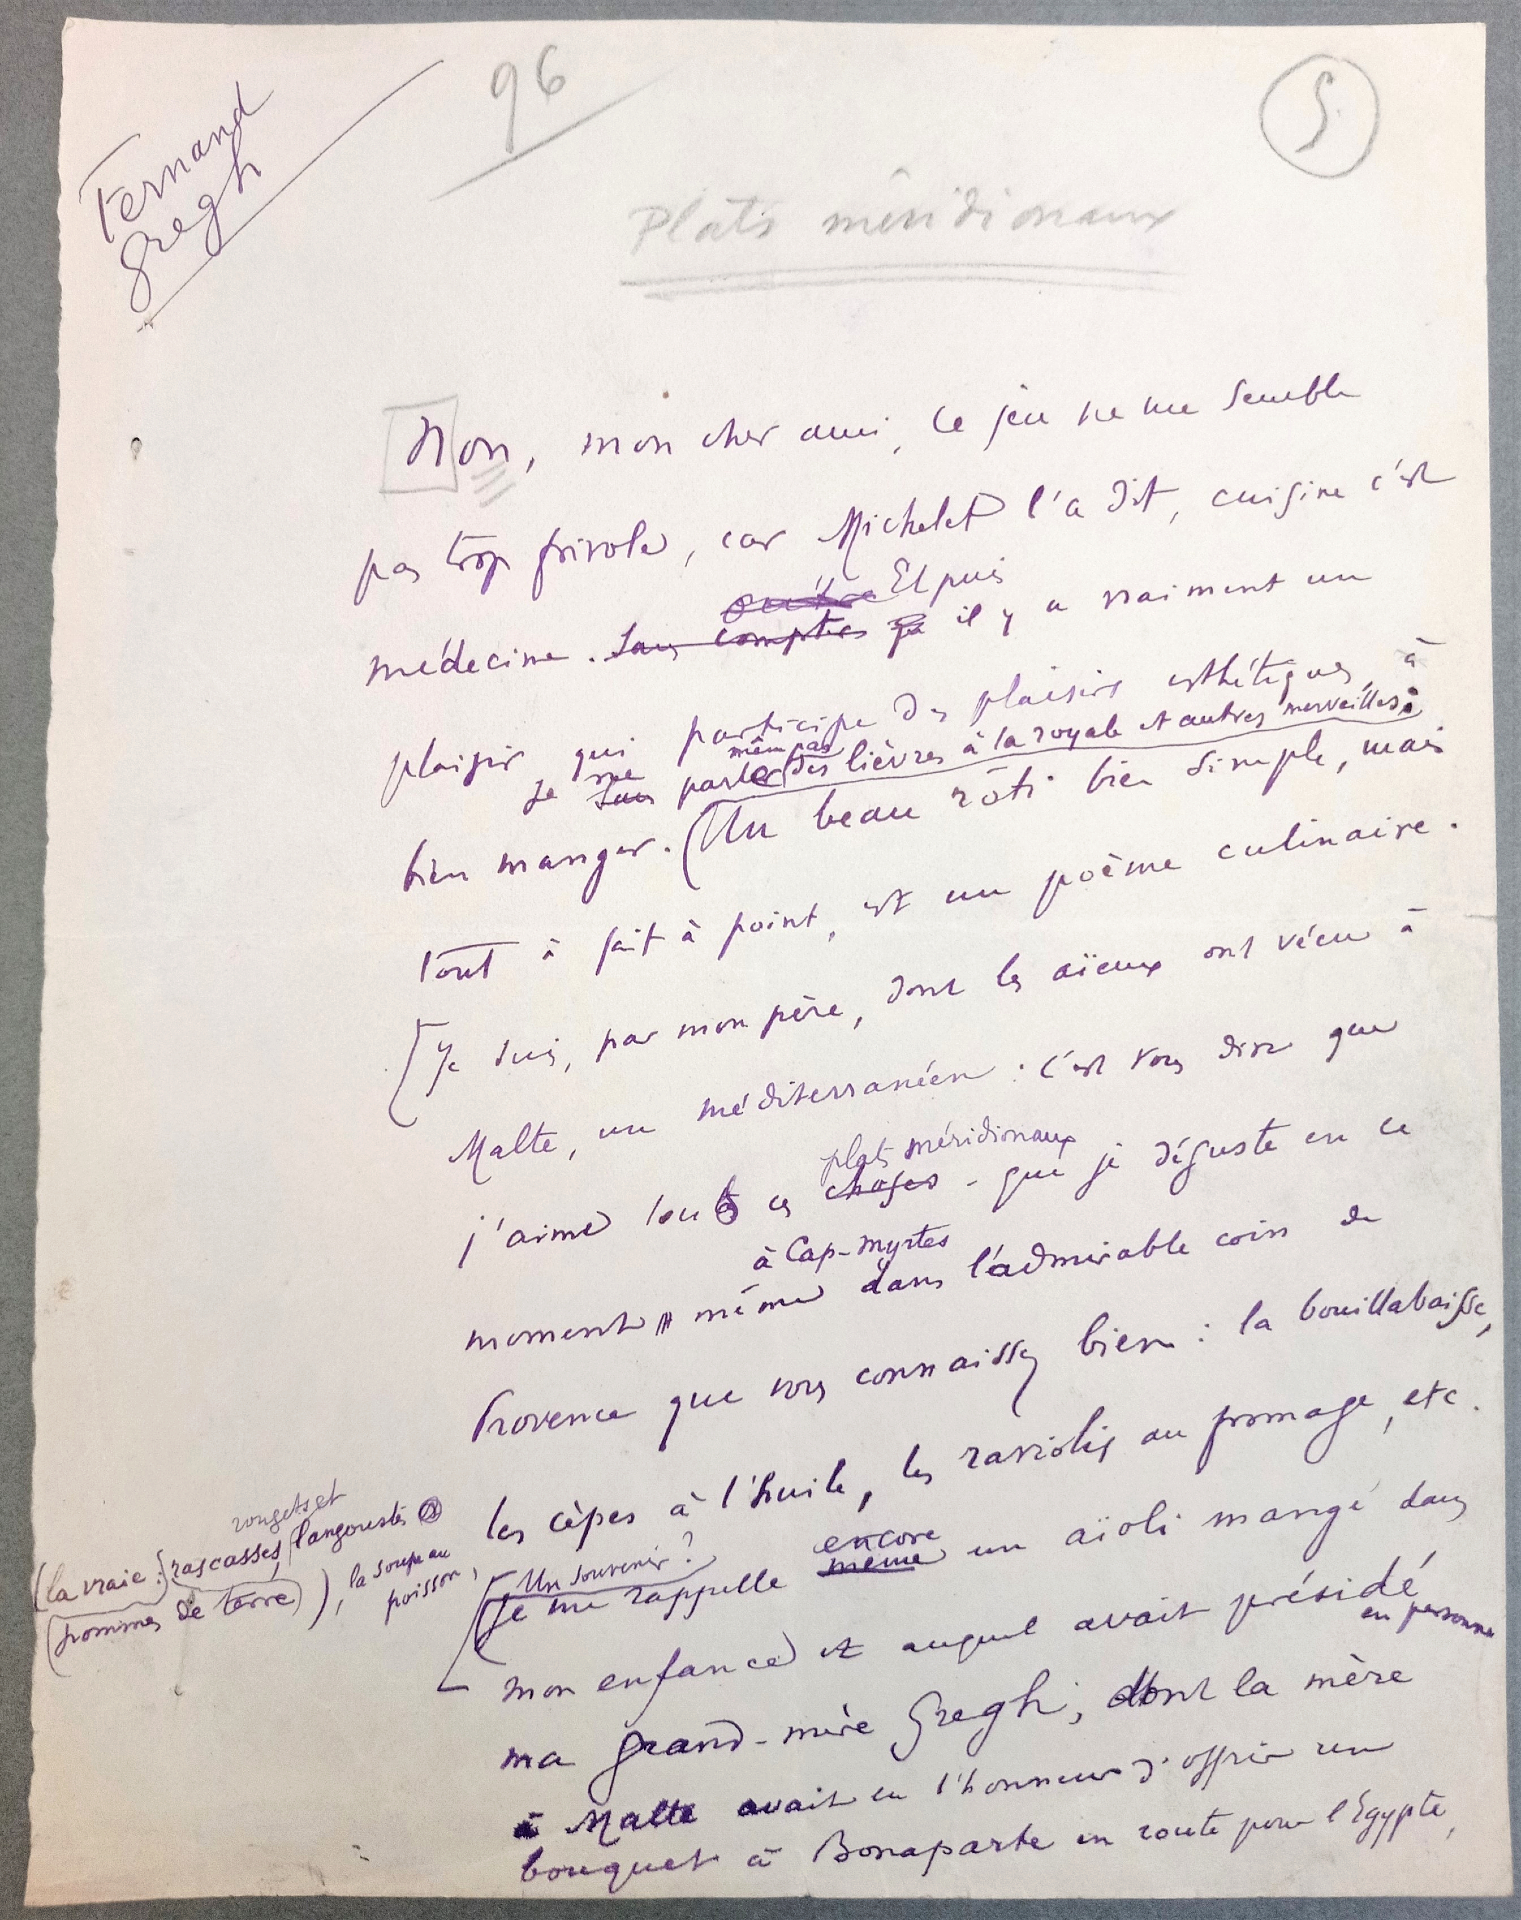 Fernand
Gregh
96
5
Plats méridionaux
Non, mon cher ami, ce jeu ne me semble
pas trop frivole, car Michelet l'a dit, cuisine c'est
Et puis
médecine. Sans compter qu' il y a vraiment un
plaisir qui participe des plaisirs esthétiques, à
même pas
je ne sans parler des lièvres à la royale et autres merveilles.
bien manger. (Un beau rôti bien simple, mais
tout à fait à point, est un poème culinaire.
[Je suis, par mon père, dont les aïeux ont vécu à
Malte, un méditerranéen : c'est vous dire que
plats méridionaux
j'aime tous ces choses - que je déguste en ce
à Cap-Myrtes
moment même dans l'admirable coin de
Provence que vous connaissez bien : la bouillabaisse,
rougets et
(la vraie : rascasses, langoustes
(pommes de terre)), la soupe au
poisson,
les cèpes à l'huile, les raviolis au fromage, etc.
Un souvenir ?
encore
Je me rappelle même un aïoli mangé dans
mon enfance et auquel avait présidé
en personne
ma grand-mère Gregh, dont la mère
à Malte avait eu l'honneur d'offrir un
bouquet à Bonaparte en route pour l'Egypte,